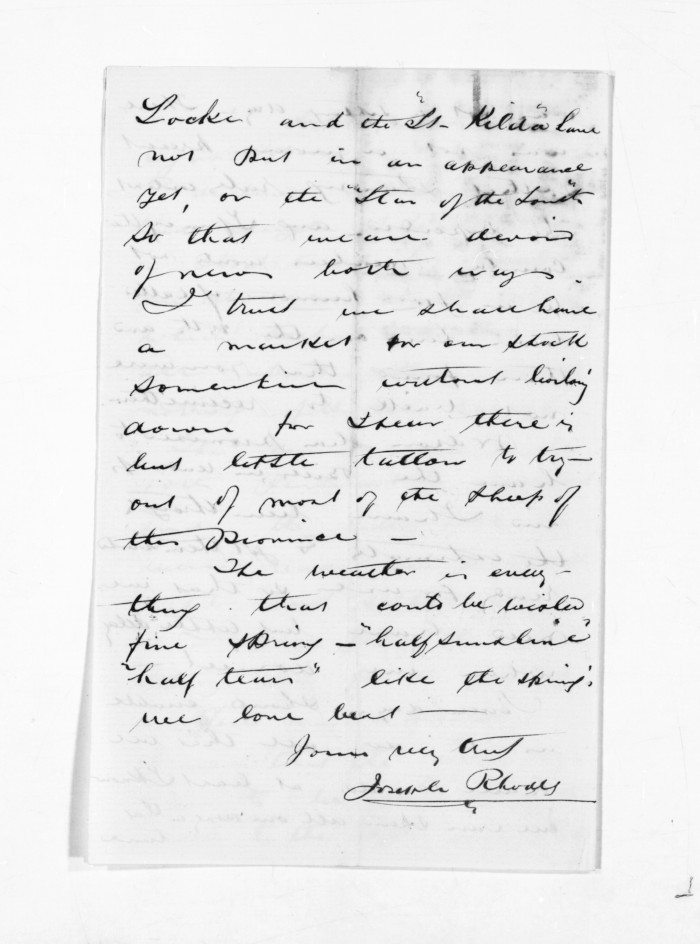 Locke and the "St. Kilda" have
not put in an appearance
yet, or the "Star of the South"
so that we are devoid
of news both ways.
I trust we shall have
a market for our stock
sometime without boiling
down for I hear there is
but little tallow to try
out of most of the sheep of
this Province —
The weather is every-
thing that could be wished
fine spring — "half sunshine"
"half tears" like the spring's
we love best —
Yours very truly
Joseph Rhodes